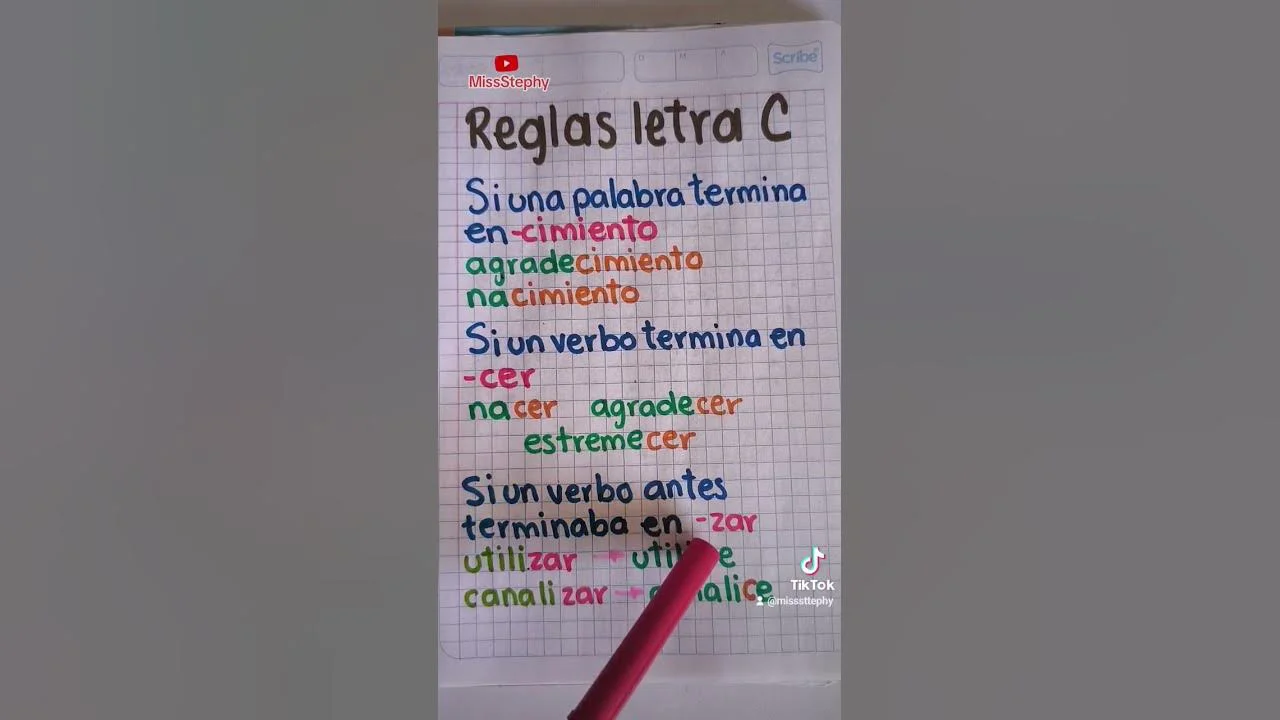 MissStephy
D M A
Scribe
Reglas letra C
Si una palabra termina
en -cimiento
agradecimiento
nacimiento
Si un verbo termina en
-cer
nacer agradecer
estremecer
Si un verbo antes
terminaba en -zar
utilizar →
canalizar →
TikTok
@misssttephy